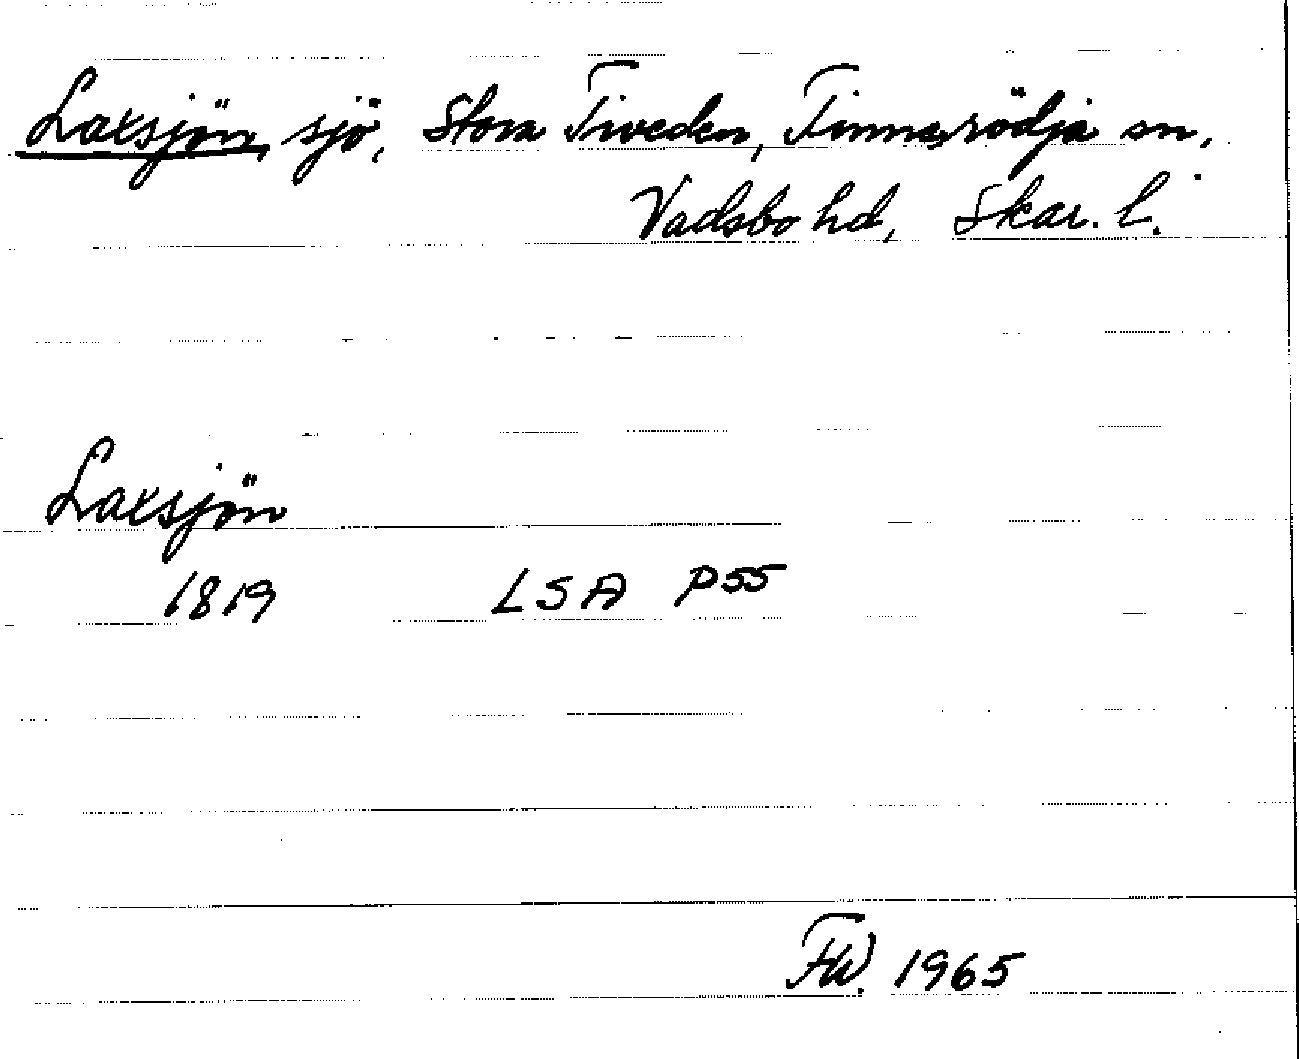 Laxsjön, sjö, Stora Tiveden, Finnerödja sn,
Vadsbo hd, Skar. l.
Laxsjön
1819 LSA P55
FW. 1965